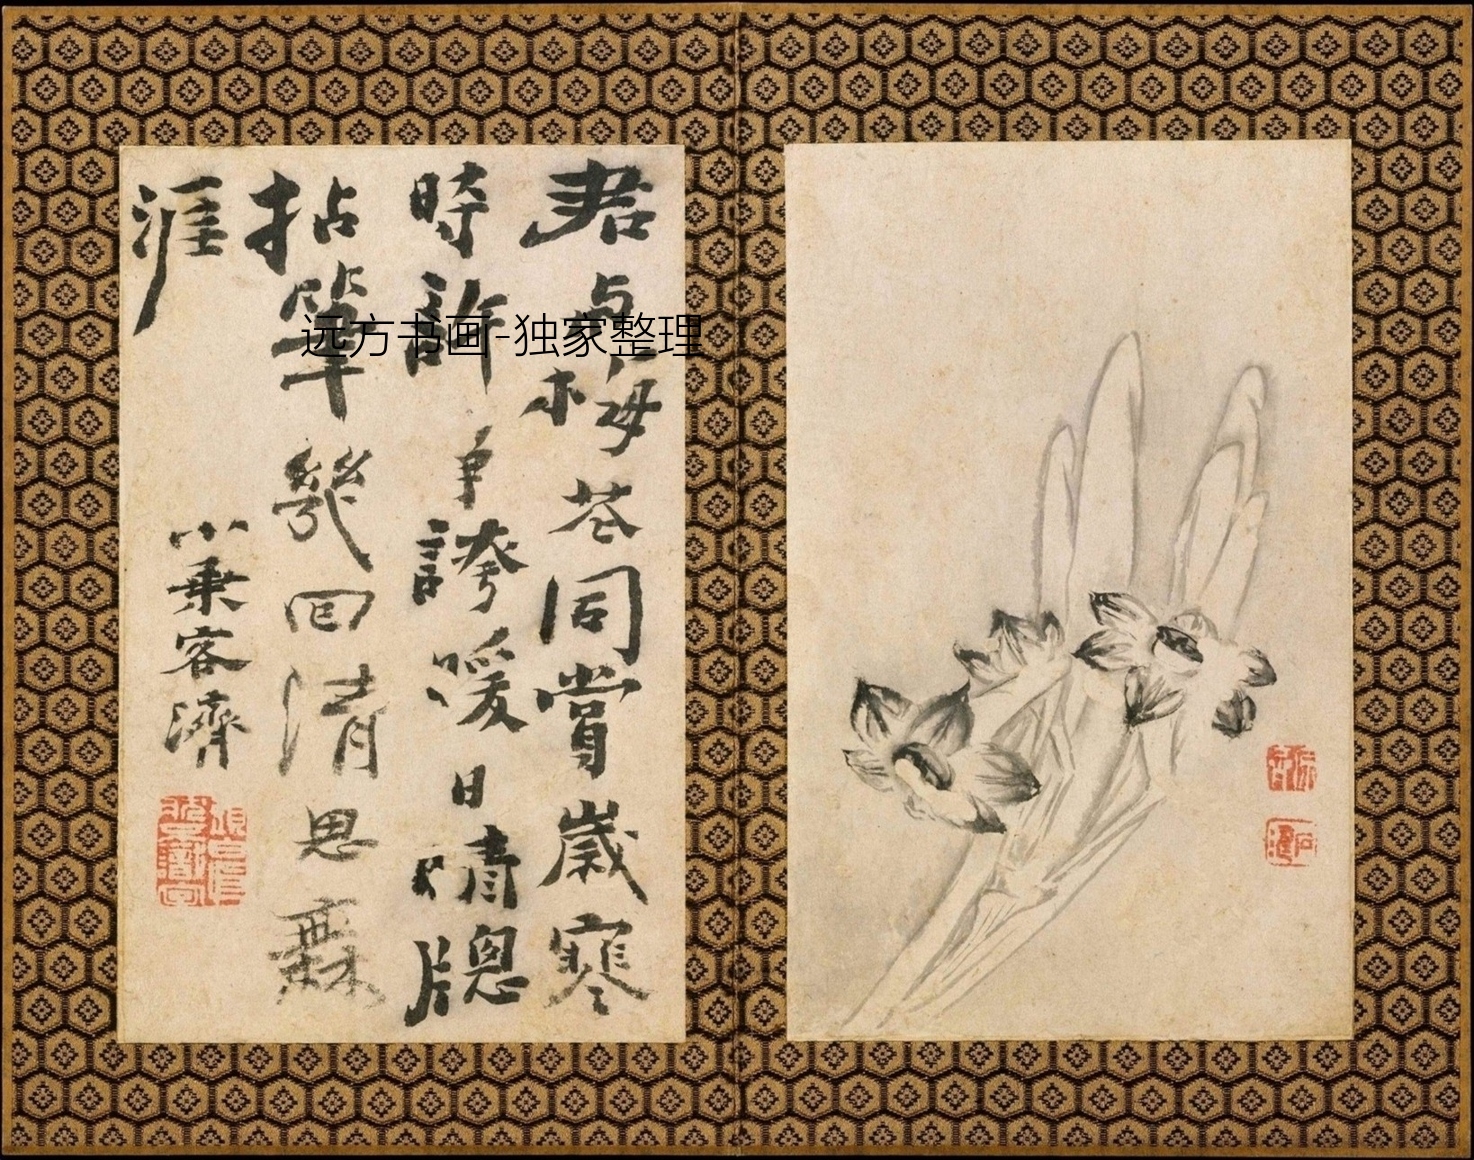 君与梅花同賞歲寒
時許爭誇暖日晴牕
拈筆幾回清思無
涯
小乘客濟
石濤
远方书画-独家整理